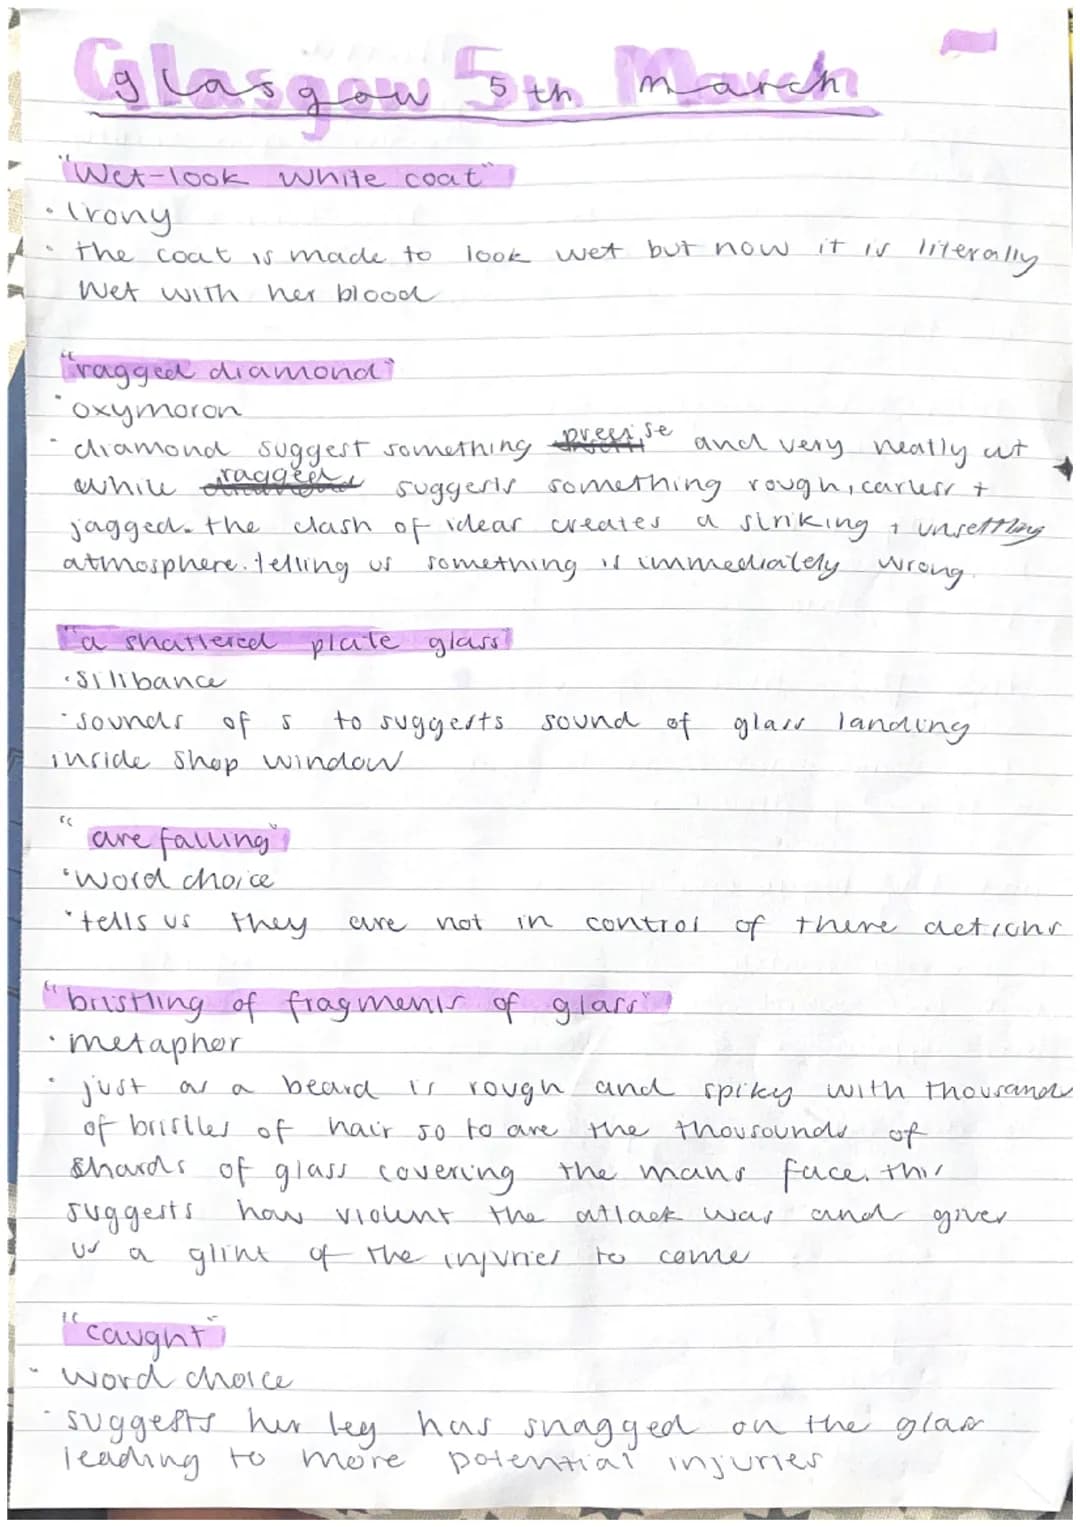 Glasgow 5th March
"Wet-look white coat"
· Irony
· the coat is made to look wet but now it is literally
wet with her blood
"ragged diamond"
· oxymoron
· diamond suggest something precise and very neatly cut
while ragged suggests something rough, carless +
jagged. the clash of ideas creates a striking + unsettling
atmosphere. telling us something is immediately wrong.
"a shattered plate glass"
· silibance
· sounds of s to suggests sound of glass landing
inside shop window
"are falling"
· word choice
· tells us they are not in control of there actions
"bristling of fragments of glass"
· metaphor
· just as a beard is rough and spiky with thousands
of bristles of hair so to are the thousounds of
shards of glass covering the mans face. this
suggests how violent the attack was and gives
us a glint of the injuries to come
"caught"
· word choice
· suggests her leg has snagged on the glass
leading to more potential injuries